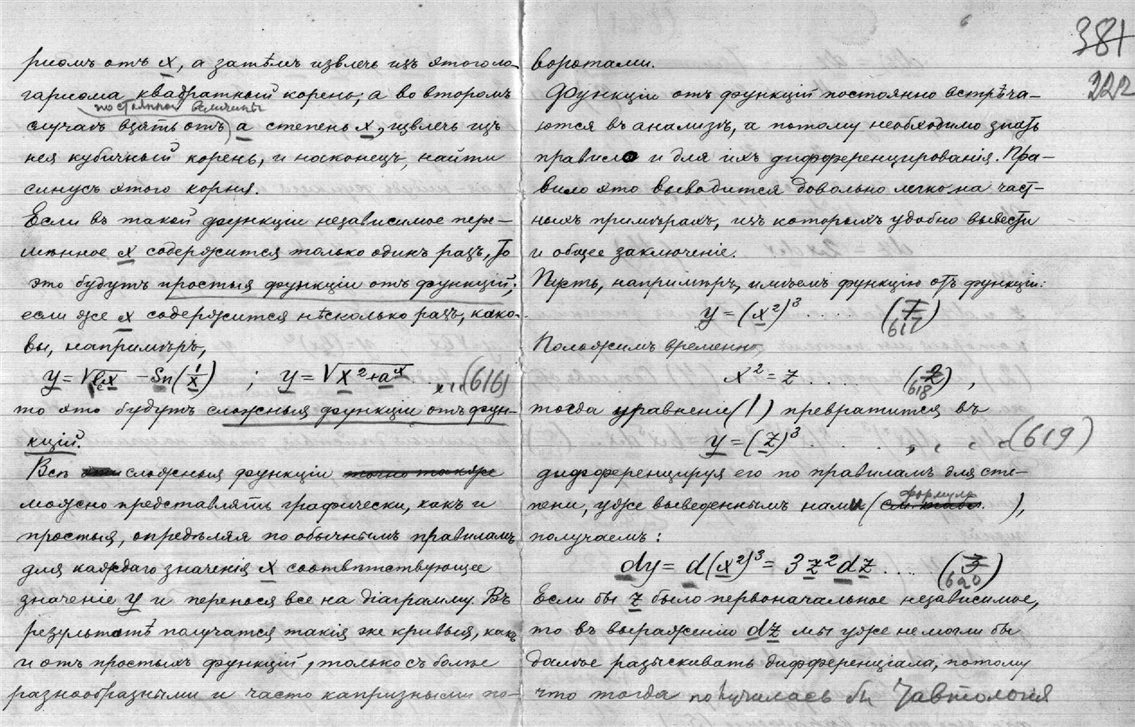 риомъ отъ x, а затѣмъ извлечь изъ этого ло-
гариома квадратный корень; а во второмъ
постоянной величины
случаѣ взять отъ a степень x, извлечь изъ
нея кубичный корень, и носконецъ, найти
синусъ этого корня.
Если въ такой функціи независимое пере-
мѣнное x содержится только одинъ разъ, то
это будутъ простыя функціи отъ функцій;
если же x содержится нѣсколько разъ, како-
вы, напримѣръ,
y = √lx - Sn(1/x) ; y = √x² + aˣ ....(616)
то это будутъ сложныя функціи отъ фун-
кцій.
Всѣ сложныя функціи точно также
можно представлять графически, какъ и
простыя, опредѣляя по обычнымъ правиламъ
для каждаго значенія x соотвѣтствующее
значеніе y и перенося все на діаграмму. Въ
результатѣ получатся такія же кривыя, какъ
и отъ простыхъ функцій, только съ болѣе
разнообразными и часто капризными по-
381
222
воротами.
Функціи отъ функцій постоянно встрѣча-
ются въ анализѣ, а потому необходимо знать
правило и для ихъ дифференцированія. Пра-
вило это выводится довольно легко на част-
ныхъ примѣрахъ, изъ которыхъ удобно вывести
и общее заключеніе.
Пусть, напримѣръ, имѣемъ функцію отъ функціи:
y = (x²)³ .... (1) 617
Положимъ временно,
x² = z .... (2) 618,
тогда уравненіе (1) превратится въ
y = (z)³ .... (619)
дифференцируя его по правиламъ для сте-
формула
пени, уже выведеннымъ нами ( ),
получаемъ:
dy = d(x²)³ = 3z²dz .... (3) 620
Если бы z было первоначальное независимое,
то въ выраженію dz мы уже не могли бы
далѣе разыскивать дифференціала, потому
что тогда получалась бы тавтологія